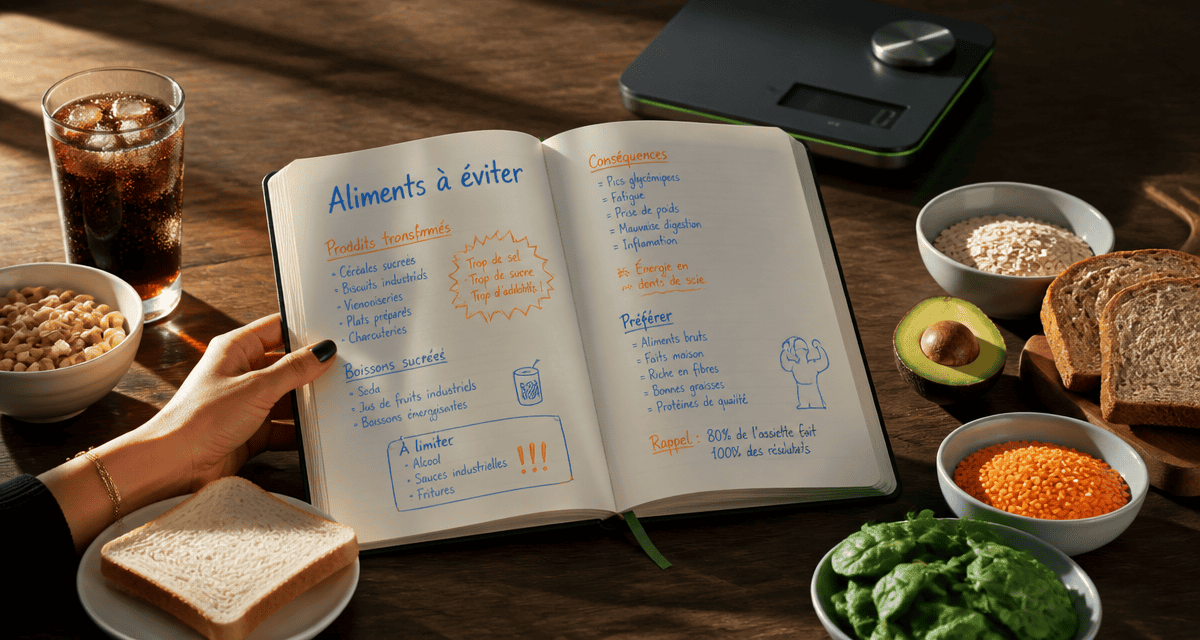 Aliments à éviter
Proddits transfrmés
- Céréales sucreés
- Biscuits industrids
- Vienoniseries
- Plats préparés
- Charcuteries
Trop de sel
- Trop de sucre
Trop d'additifs !
Boissons sucreés
- Seda
- Jus de fruits industriels
- Boissons énergisantes
À limiter
- Alcool
- Sauces industrielles
- Fritures
!!!
Conséquences
= Pics glycémiques
= Fatigue
= Prise de poids
= Mauvaise digestion
= Inflamation
Énergie en
dents de scie
Préférer
= Aliments bruts
= Faits maison
= Riche en fibres
= Bonnes graisses
= Protéines de qualité
Rappel : 80% de l'assiette fait
100% des résultats